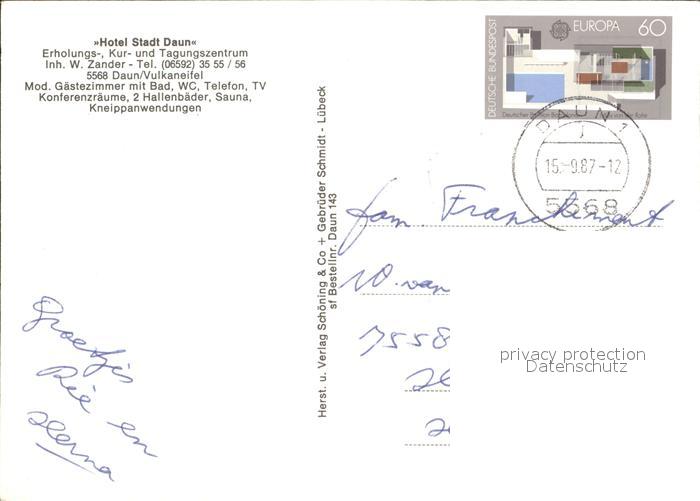 »Hotel Stadt Daun«
Erholungs-, Kur- und Tagungszentrum
Inh. W. Zander - Tel. (06592) 35 55 / 56
5568 Daun/Vulkaneifel
Mod. Gästezimmer mit Bad, WC, Telefon, TV
Konferenzräume, 2 Hallenbäder, Sauna,
Kneippanwendungen
Groetjes
Rie en
Herma
Herst. u. Verlag Schöning & Co + Gebrüder Schmidt - Lübeck
sf Bestellnr. Daun 143
DEUTSCHE BUNDESPOST
EUROPA 60
DAUN 1
15.-9.87-12
5568
fam. Franckement
W. van
7558
privacy protection
Datenschutz